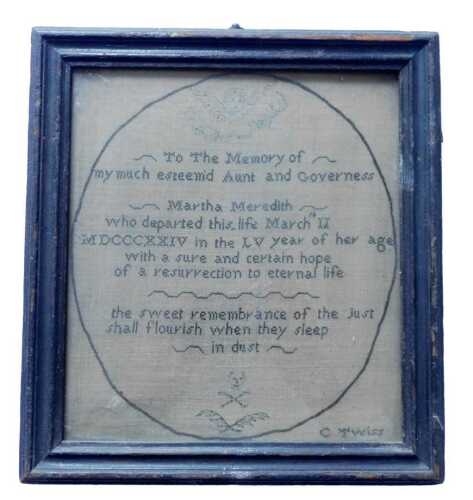 To The Memory of
my much esteem'd Aunt and Governess
Martha Meredith
who departed this life March II
MDCCCXXIV in the LV year of her age
with a sure and certain hope
of a resurrection to eternal life
the sweet remembrance of the Just
shall flourish when they sleep
in dust
C